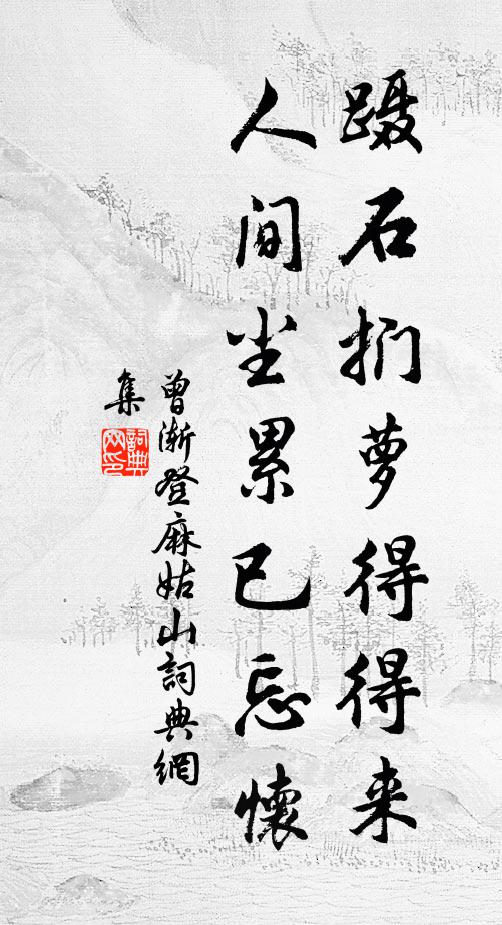 蹑石扪萝得得来
人间尘累已忘懷
曾渐登麻姑山詞典網
集
詞典网印